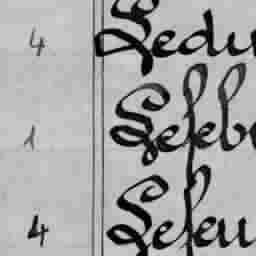 4 Ledu
1 Lefeb
4 Lefeu